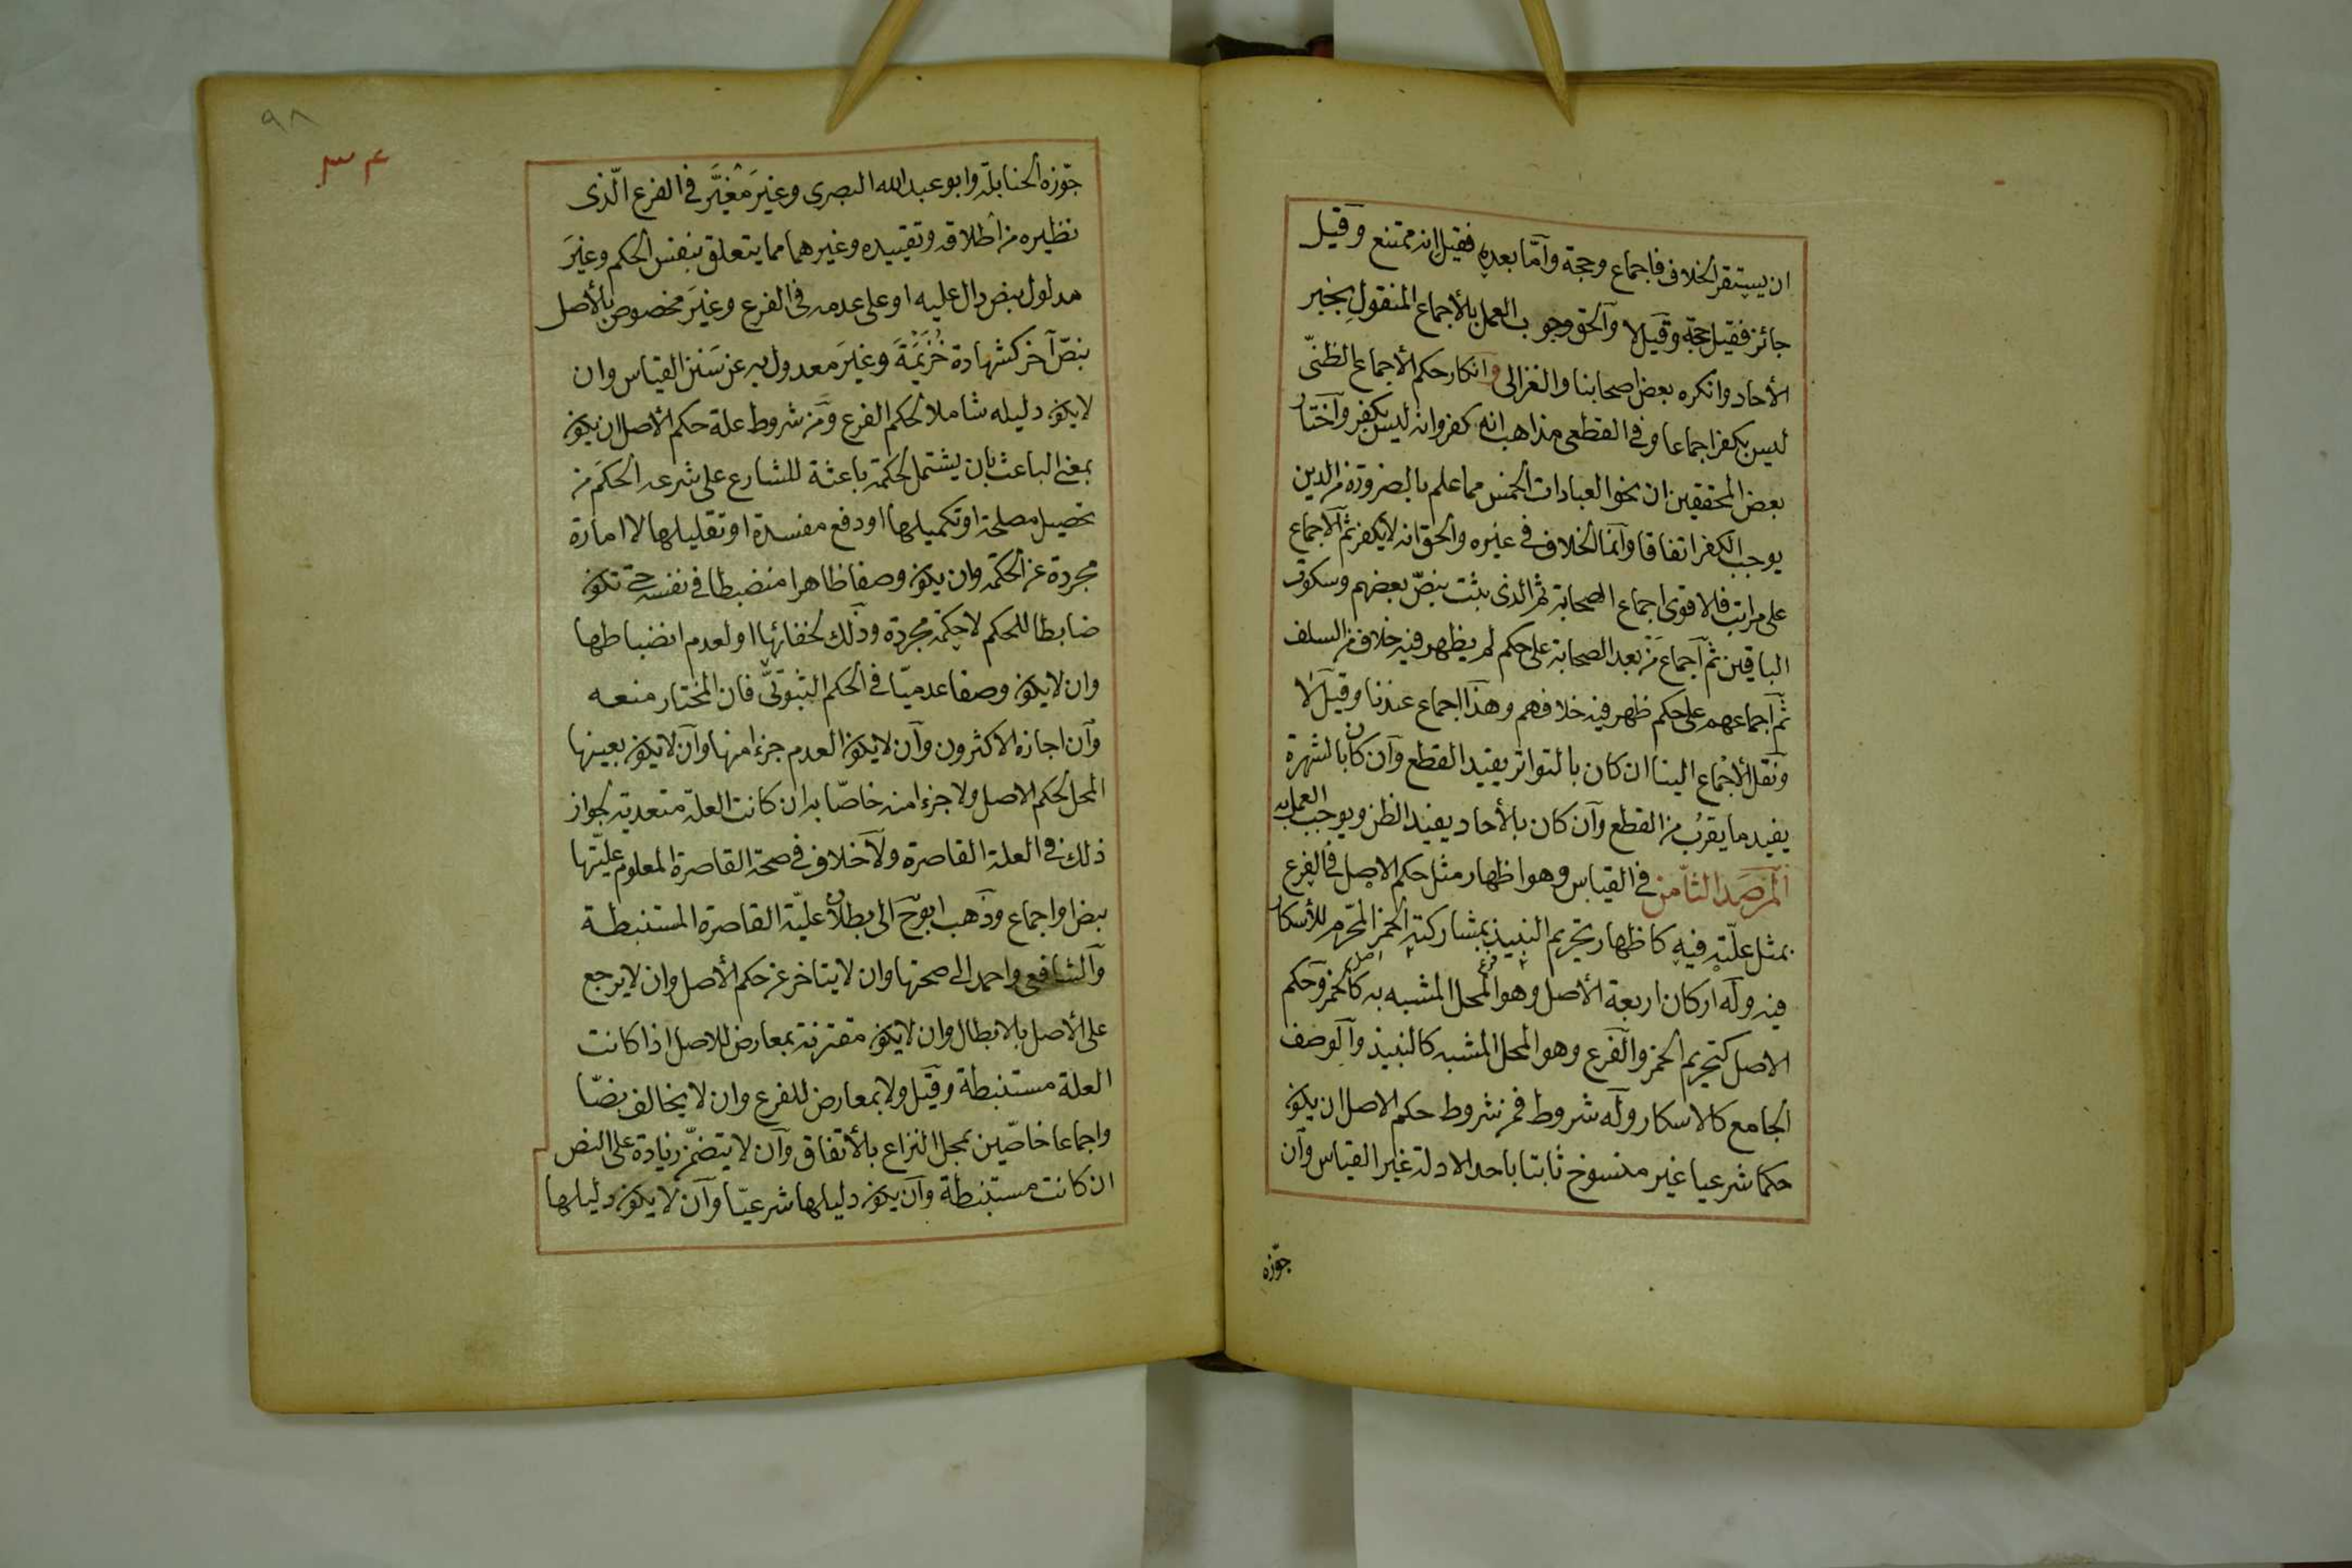 ان يستقر الخلاف فاجماع وحجة وآمّا بعده فقيل انه ممتنع وقيل
جائز فقيل حجة وقيل لا والحق وجوب العمل بالأجماع المنقول بخبر
الأحاد وانكره بعض اصحابنا والغزالى وانكار حكم الأجماع الظنىّ
ليس بكفر اجماعا وفى القطعى مذاهب انه كفر وانه ليس بكفر وآختار
بعض المحققين ان نحو العبادات الخمس مما علم بالضرورة من الدين
يوجب الكفر اتفاقا وآنما الخلاف فى غيره والحق انه لا يكفر ثم الأجماع
على مراتب فالاقوى اجماع الصحابة ثم الذى يثبت بنصّ بعضهم وسكوت
الباقين ثم اجماع مَن بعد الصحابة على حكم لم يظهر فيه خلاف من السلف
ثم اجماعهم على حكم ظهر فيه خلافهم وهذا اجماع عندنا وقيل لا
ونقل الأجماع الينا ان كان بالتواتر يفيد القطع وآن كان بالشهرة
يفيد ما يقربُ من القطع وآن كان بالأحاد يفيد الظن ويوجب العمل به
المَرصَد الثامن فى القياس وهو اظهار مثل حكم الاصل فى الفرع
بمثل علّته فيه كاظهار تحريم النبيذ بمشاركته الخمر المحرّم للأسكار
فيه وله اركان اربعة الأصل وهو المحل المشبه به كالخمر وحكم
الاصل كتحريم الخمر والفرع وهو المحل المشبه كالنبيذ وآلوصف
الجامع كالاسكار وله شروط فمن شروط حكم الاصل ان يكون
حكما شرعيا غير منسوخ ثابتا باحد الادلة غير القياس وآن
جوّزه
٩٨
٣٤
جوّزه الحنابلة وابو عبد الله البصرى وغيرَ مُغيَّر فى الفرع الّذى
نظيره من اطلاقه وتقييده وغيرهما مما يتعلق بنفس الحكم وغيرَ
مدلول بنص دال عليه او على عدمه فى الفرع وغيرَ مخصوص بالأصل
بنصّ آخر كشهادة خُزَيمَةَ وغيرَ معدول به عن سَنن القياس وان
لا يكون دليله شاملا لحكم الفرع ومن شروط علة حكم الاصل ان يكون
بمعنى الباعث بان يشتمل لحكمة باعثة للشارع على شرعه الحكمَ من
تحصيل مصلحة او تكميلها او دفع مفسدة او تقليلها لا امارة
مجردة عن الحكمة وان يكون وصفا ظاهرا منضبطا فى نفسه حتى تكون
ضابطا للحكم لا حِكمة مجردة وذلك لخفائها او لعدم انضباطها
وان لا يكون وصفا عدميّا فى الحكم الثبوتىّ فان المختار منعه
وآن اجازه الاكثرون وآن لا يكون العدم جزءا منها وآن لا يكون بعينها
المحل لحكم الاصل ولا جزءا منه خاصّا به ان كانت العلة متعدية لجواز
ذلك فى العلة القاصرة ولآ خلاف فى صحة القاصرة المعلوم علّيتها
بنص او اجماع وذهب ابو ح الى بطلان علّية القاصرة المستنبطة
والشافعى واحمد الى صحتها وان لا يتاخر عن حكم الأصل وان لا يرجع
على الأصل بالابطال وان لا يكون مقترنة بمعارض للاصل اذا كانت
العلة مستنبطة وقيل ولا بمعارض للفرع وان لا يخالف نصّا
واجماعا خاصّين بمحل النزاع بالأتفاق وآن لا يتضمّن زيادة على النص
ان كانت مستنبطة وآن يكون دليلها شرعيّا وآن لا يكون دليلها